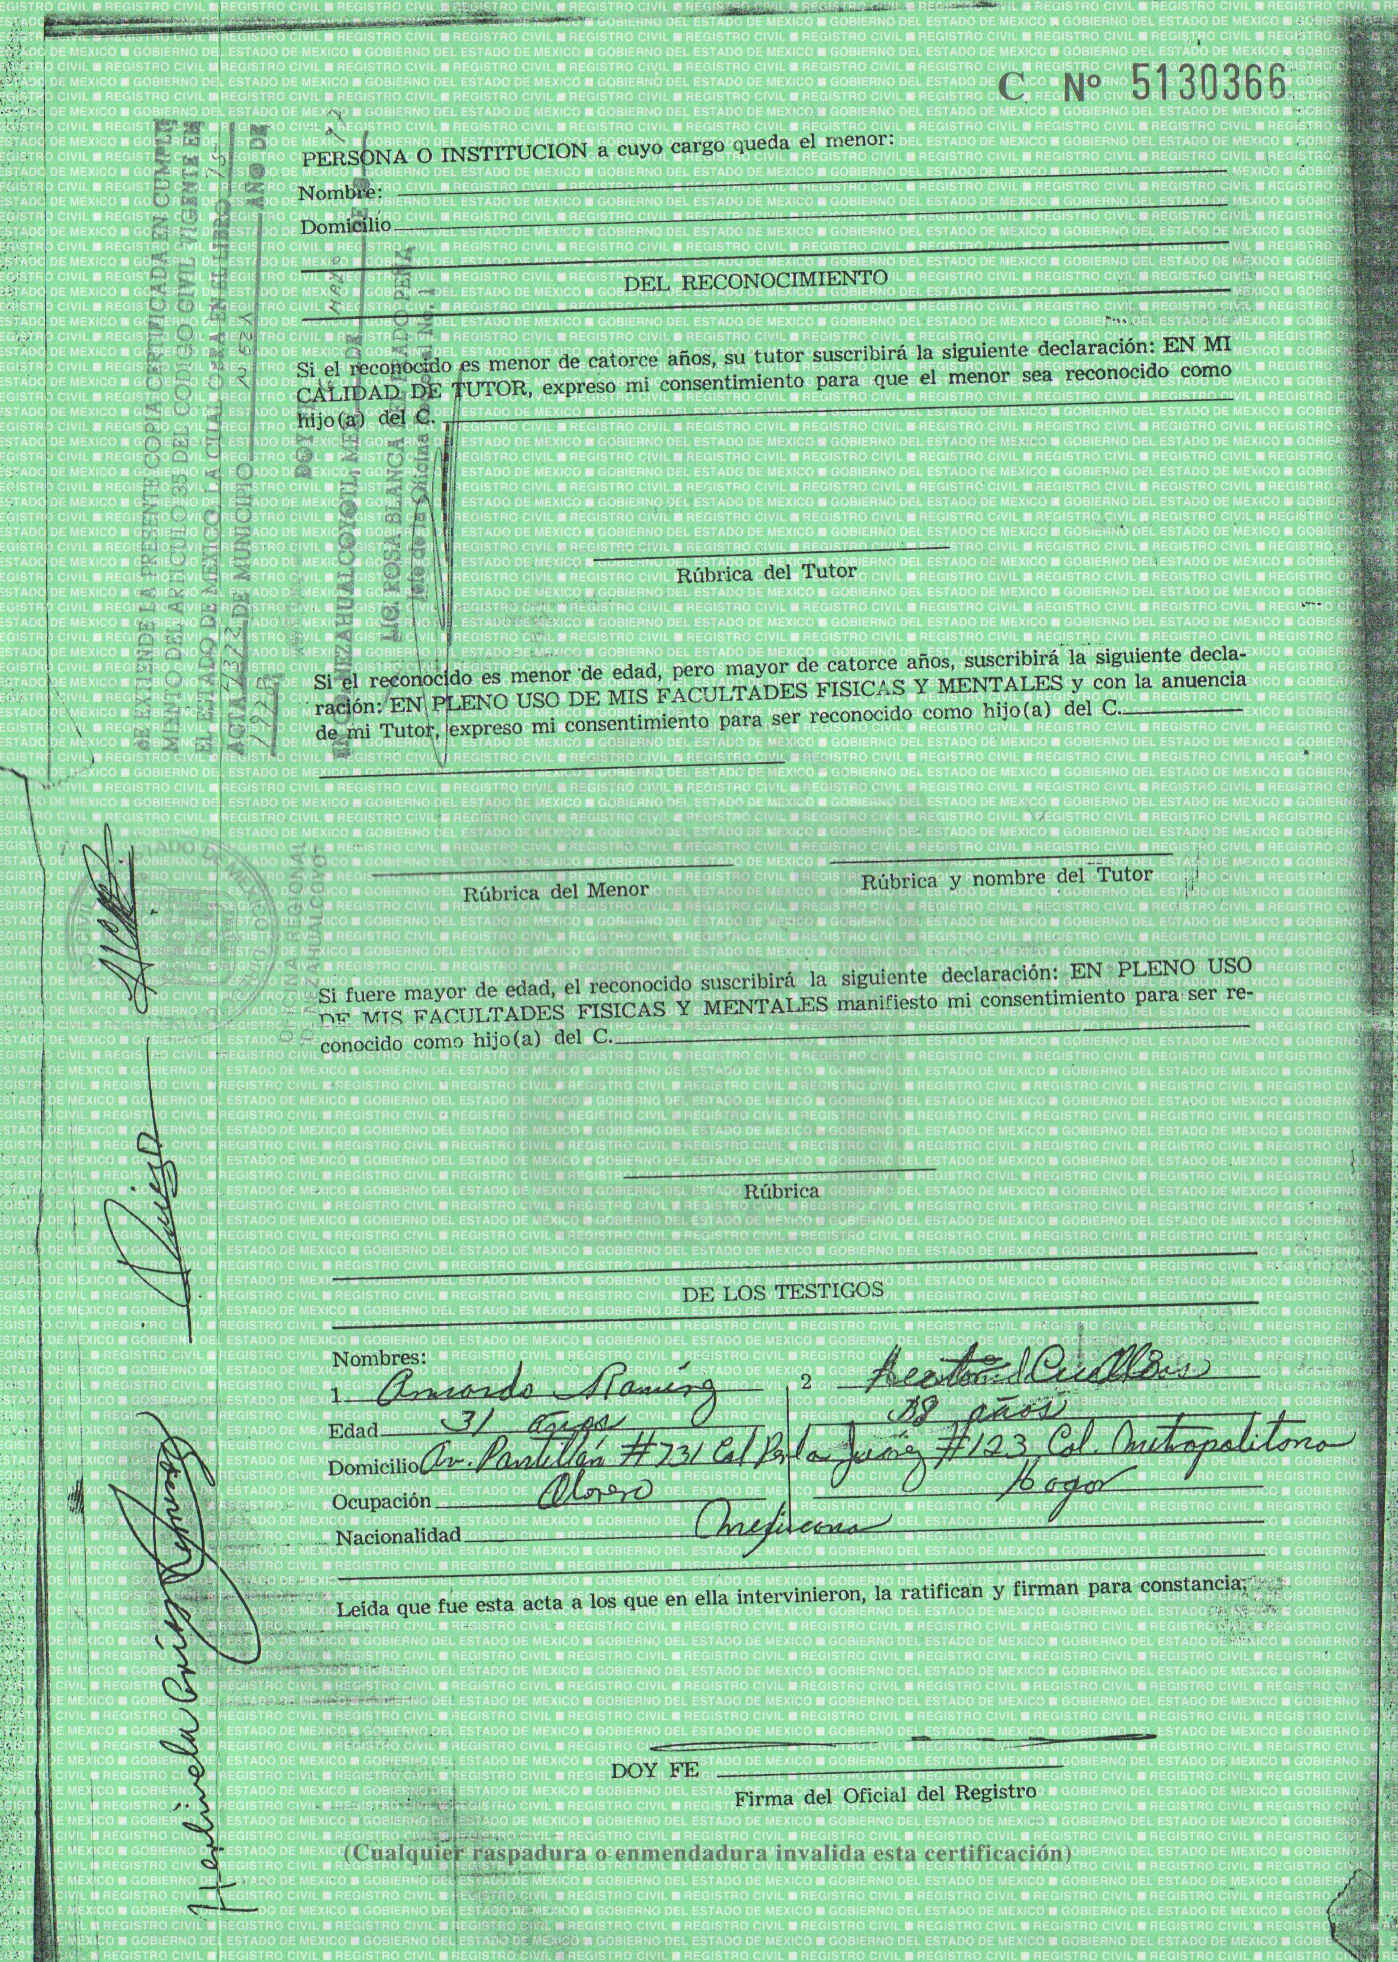 C Nº 5130366
PERSONA O INSTITUCION a cuyo cargo queda el menor:
Nombre:
Domicilio
DEL RECONOCIMIENTO
Si el reconocido es menor de catorce años, su tutor suscribirá la siguiente declaración: EN MI
CALIDAD DE TUTOR, expreso mi consentimiento para que el menor sea reconocido como
hijo(a) del C.
Rúbrica del Tutor
Si el reconocido es menor de edad, pero mayor de catorce años, suscribirá la siguiente decla-
ración: EN PLENO USO DE MIS FACULTADES FISICAS Y MENTALES y con la anuencia
de mi Tutor, expreso mi consentimiento para ser reconocido como hijo(a) del C.
Rúbrica del Menor
Rúbrica y nombre del Tutor
Si fuere mayor de edad, el reconocido suscribirá la siguiente declaración: EN PLENO USO
DE MIS FACULTADES FISICAS Y MENTALES manifiesto mi consentimiento para ser re-
conocido como hijo(a) del C.
Rúbrica
DE LOS TESTIGOS
Nombres:
1 2
Edad 31 años 38 años
Domicilio Av. Pantitlán #731 Col #123 Col. Metropolitana
Ocupación Obrero Hogar
Nacionalidad Mexicana
Leída que fue esta acta a los que en ella intervinieron, la ratifican y firman para constancia;
DOY FE
Firma del Oficial del Registro
(Cualquier raspadura o enmendadura invalida esta certificación)
SE EXTIENDE LA PRESENTE COPIA CERTIFICADA EN CUMPLI
MIENTO DEL ARTICULO 35 DEL CODIGO CIVIL VIGENTE EN
EL ESTADO DE MEXICO LA CUAL OBRA EN EL LIBRO 15
ACTA DE MUNICIPIO NEZA AÑO DE
DOY
NEZAHUALCOYOTL, MEX DE MAYO DE 92
LIC. ROSA BLANCA PEÑA
Jefe de la Oficina No. 1
OFICINA REGIONAL
CD. NEZAHUALCOYO
GOBIERNO DEL ESTADO DE MEXICO
REGISTRO CIVIL